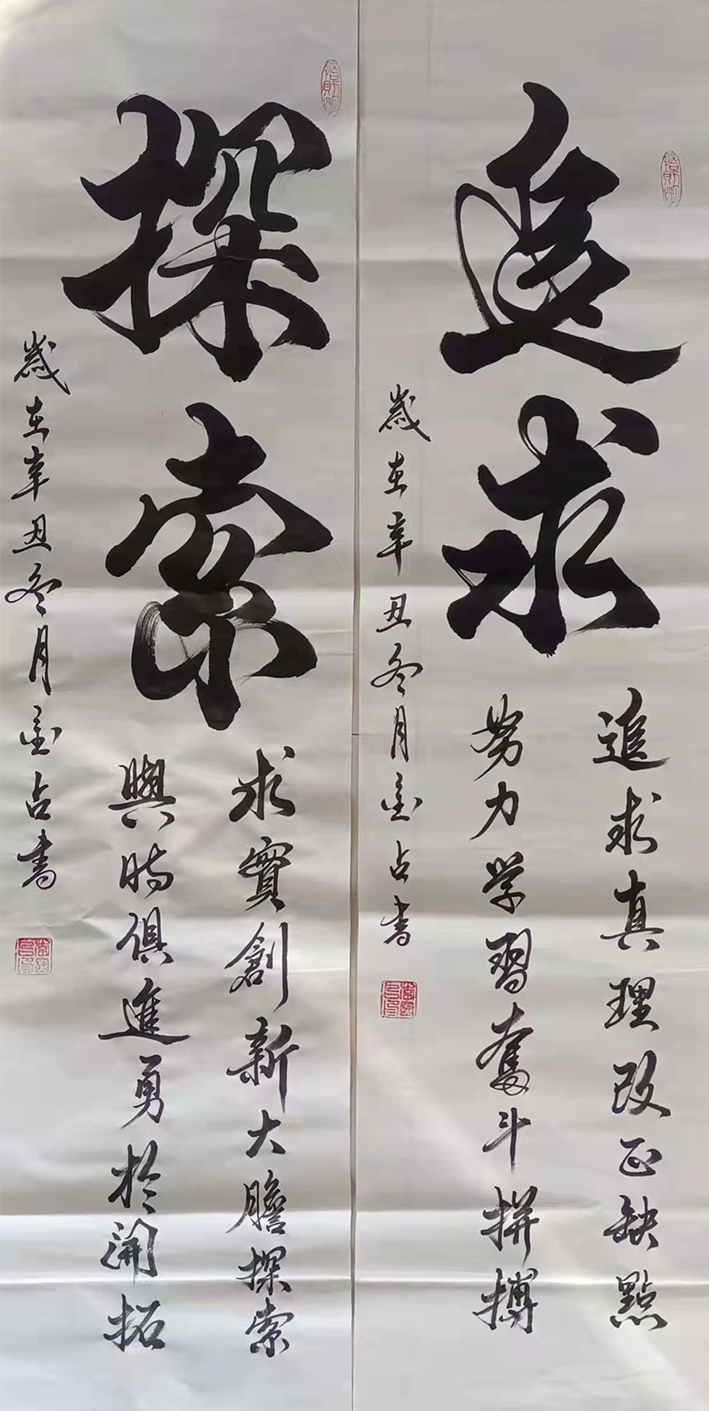 追求
追求真理改正缺點
努力学習奮斗拼搏
歲在辛丑冬月金占書
探索
求實創新大膽探索
與時俱進勇於開拓
歲在辛丑冬月金占書